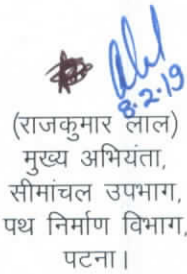 8.2.19
(राजकुमार लाल)
मुख्य अभियंता,
सीमांचल उपभाग,
पथ निर्माण विभाग,
पटना।